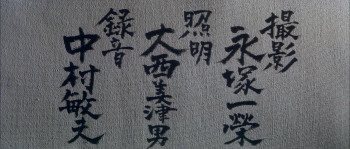 撮影
永塚一榮
照明
大西美津男
録音
中村敏夫